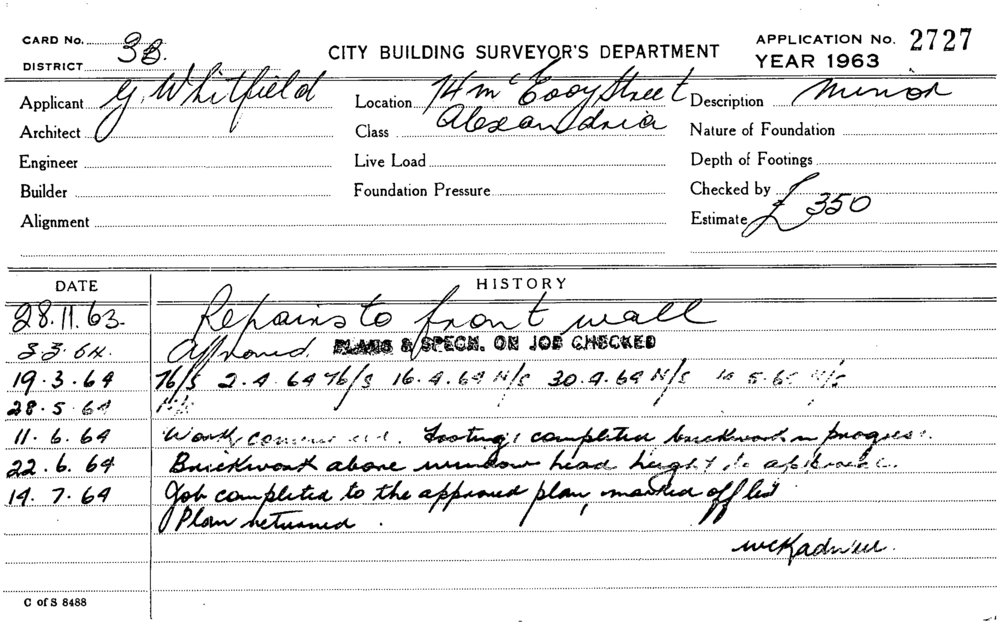 CARD No. 3B.
DISTRICT
CITY BUILDING SURVEYOR'S DEPARTMENT
APPLICATION No. 2727
YEAR 1963
Applicant G. Whitfield
Location 74 McEvoy Street
Description Minor
Architect
Class Alexandria
Nature of Foundation
Engineer
Live Load
Depth of Footings
Builder
Foundation Pressure
Checked by
Alignment
Estimate £350
DATE HISTORY
28.11.63. Repairs to front wall
3.3.64. Approved. PLANS & SPECN. ON JOB CHECKED
19.3.64 N/S 2.4.64 N/S 16.4.64 N/S 30.4.64 N/S 5.6 N/S
28.5.64 N/S
11.6.64 Work commenced. Footings completed brickwork in progress.
22.6.64 Brickwork above window head height to approved.
14.7.64 Job completed to the approved plan, marked off list
Plan returned.
C of S 8488